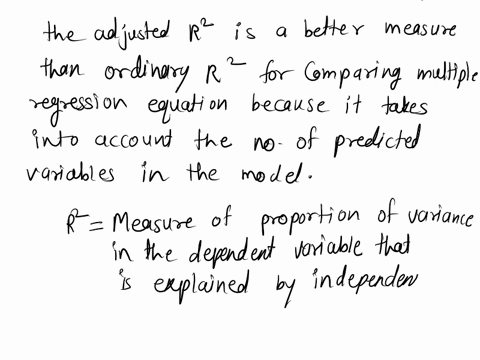 the adjusted R² is a better measure
than ordinary R² for Comparing multiple
regression equation because it takes
into account the no. of predicted
variables in the model.
R² = Measure of proportion of variance
in the dependent variable that
is explained by independen